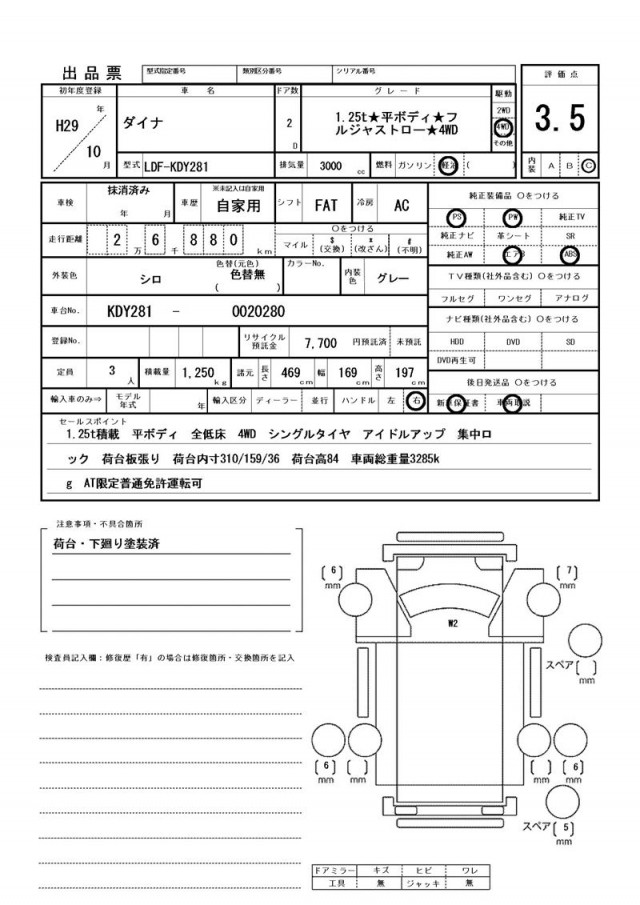 出品票 型式指定番号 類別区分番号 シリアル番号
評価点
3.5
初年度登録 車名 ドア数 グレード 駆動
H29年 / 10月 ダイナ 2D 1.25t★平ボディ★フ
ルジャストロー★4WD
2WD
4WD
その他
型式 LDF-KDY281 排気量 3000 cc 燃料 ガソリン 軽油 ( )
内装 A B C
車検 抹消済み 年 月 車歴 ※未記入は自家用 自家用 シフト FAT 冷房 AC
純正装備品 〇をつける
走行距離 2万 6千 880 km 〇をつける
マイル $(交換) *(改ざん) #(不明)
PS PW 純正TV
純正ナビ 革シート SR
純正AW エアB ABS
外装色 シロ 色替(元色) 色替無 ( ) カラーNo. 内装色 グレー
TV種類(社外品含む) 〇をつける
フルセグ ワンセグ アナログ
車台No. KDY281 - 0020280
ナビ種類(社外品含む) 〇をつける
登録No. リサイクル預託金 7,700 円預託済 未預託
HDD DVD SD
DVD再生可
定員 3人 積載量 1,250kg 諸元 長さ 469cm 幅 169cm 高さ 197cm
後日発送品 〇をつける
輸入車のみ⇒ モデル年式 年 輸入区分 ディーラー 並行 ハンドル 左 右
新車保証書 車両取説
セールスポイント
1.25t積載 平ボディ 全低床 4WD シングルタイヤ アイドルアップ 集中ロ
ック 荷台板張り 荷台内寸310/159/36 荷台高84 車両総重量3285k
g AT限定普通免許運転可
注意事項・不具合箇所
荷台・下廻り塗装済
検査員記入欄:修復歴「有」の場合は修復箇所・交換箇所を記入
[6] mm
[7] mm
W2
スペア[ ] mm
[6] mm
[ ] mm
[ ] mm
[6] mm
スペア[5] mm
ドアミラー キズ ヒビ ワレ
工具 無 ジャッキ 無